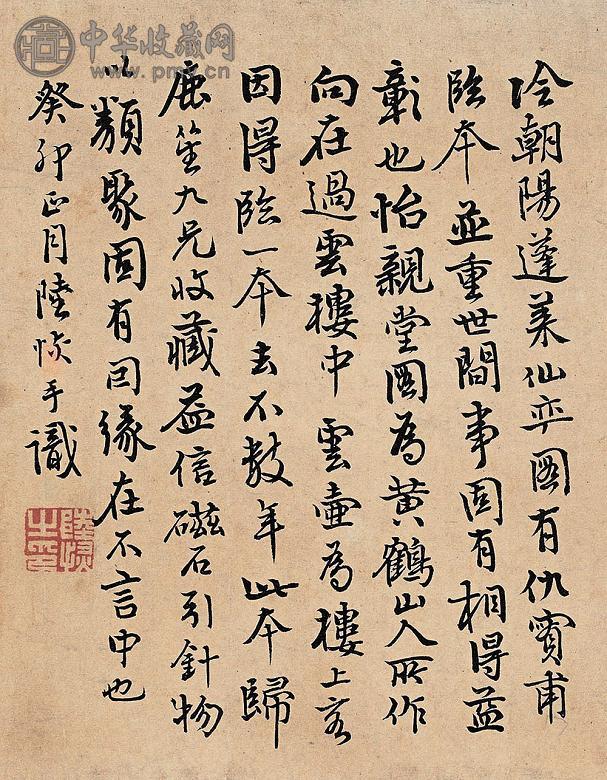 中华收藏网
冷朝陽蓬萊仙弈圖有仇實甫
臨本並重世間事固有相得益
彰也怡親堂圖為黃鶴山人所作
向在過雲樓中雲壺為樓上客
因得臨一本去不數年此本歸
鹿笙九兄收藏益信磁石引針物
以類聚固有因緣在不言中也
癸卯正月陸恢手識
陸恢